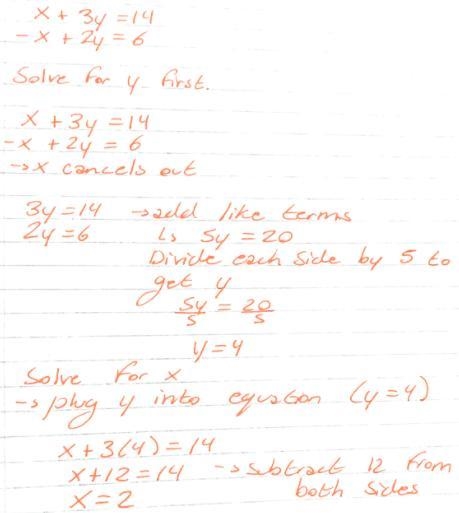 x + 3y = 14
-x + 2y = 6
Solve for y first.
x + 3y = 14
-x + 2y = 6
→x cancels out
3y = 14 →add like terms
2y = 6 ↳ 5y = 20
Divide each side by 5 to
get y
5y/5 = 20/5
y = 4
Solve for x
→ plug y into equation (y=4)
x + 3(4) = 14
x + 12 = 14 →subtract 12 from
x = 2 both sides